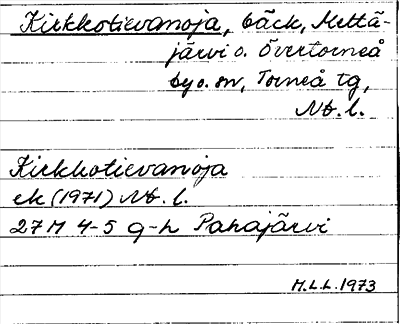 Kirkkotievanoja, bäck, Mettä-
järvi o. Övertorneå
by o. sn, Torneå tg,
Nb. l.
Kirkkotievanoja
ek (1971) Nb. l.
27M 4-5 g-h Pahajärvi
M.L.L. 1973